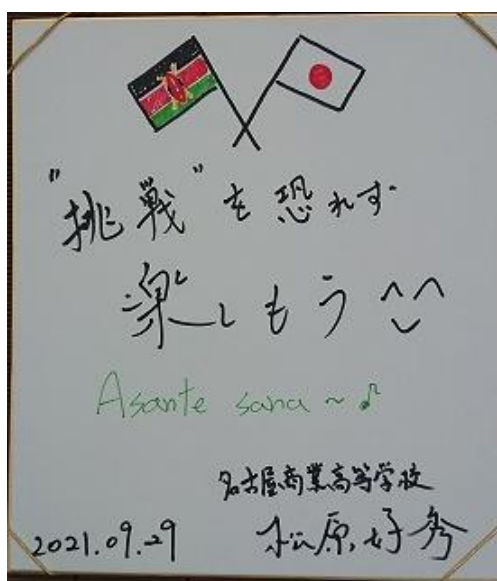 "挑戦"を恐れず
楽しもう ^^
Asante sana~♪
名古屋商業高等学校
2021.09.29 松原好秀